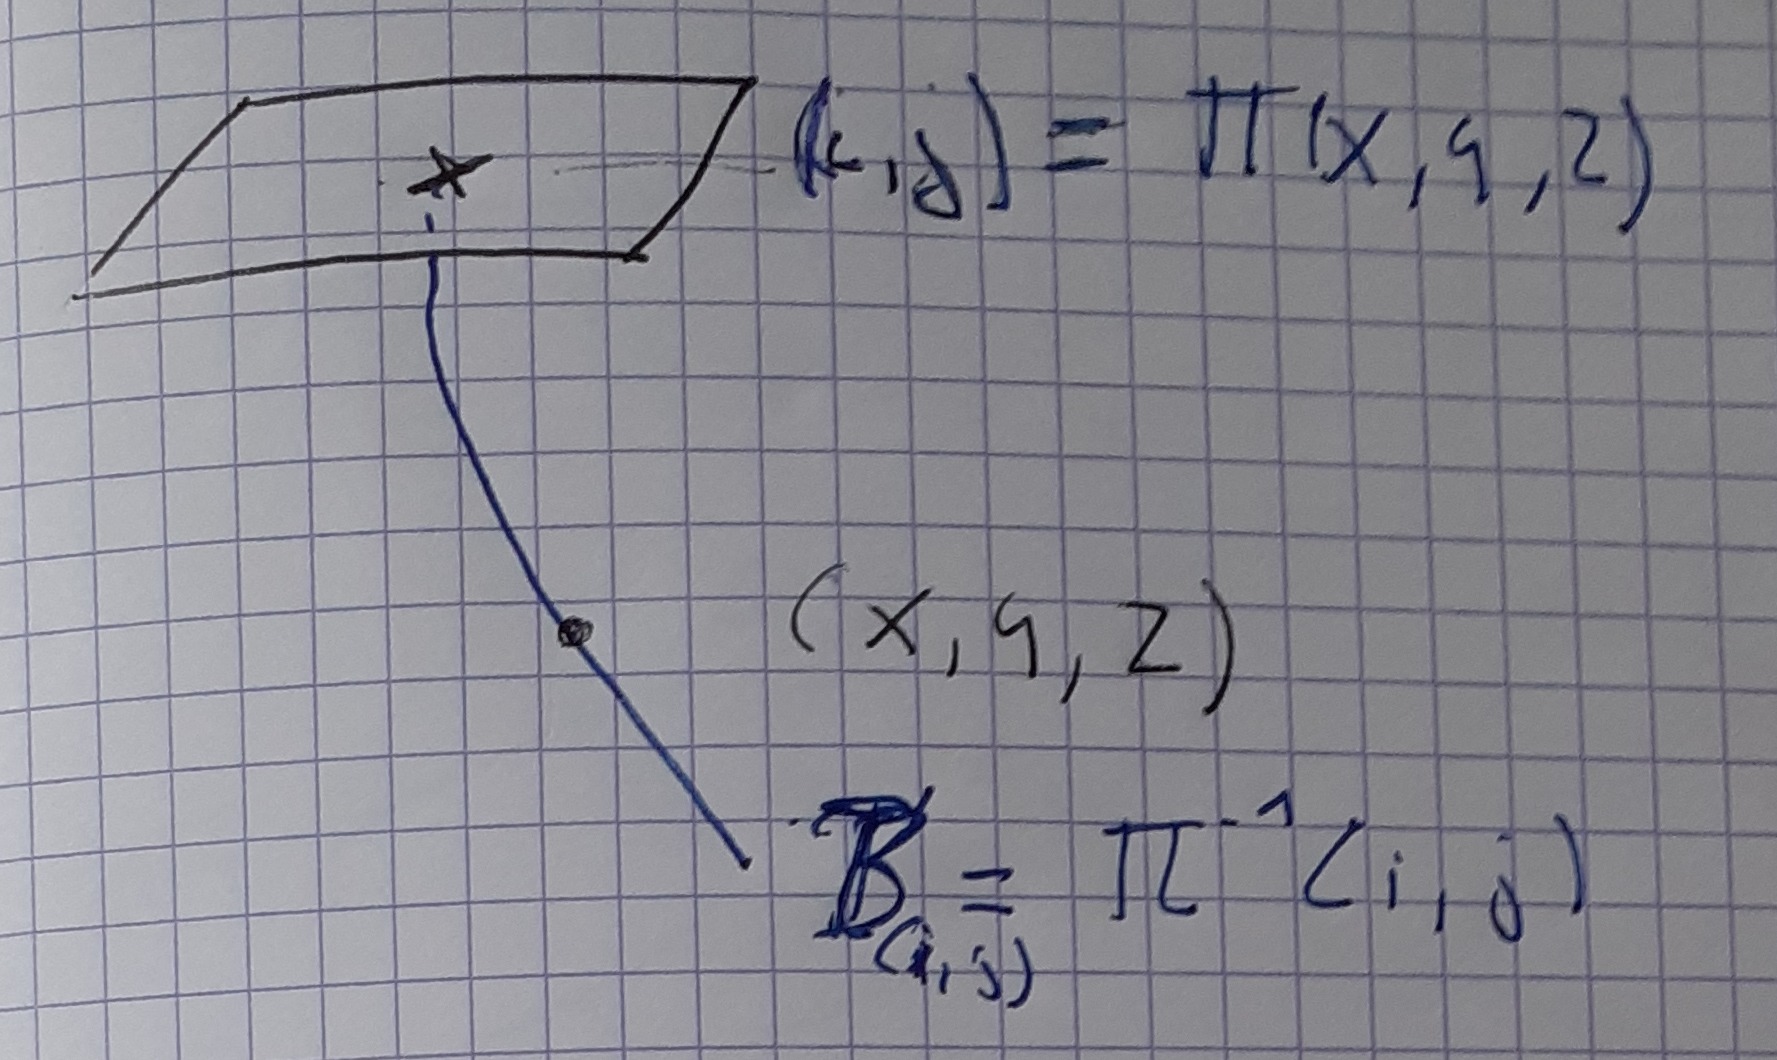 (i,j) = π(x,y,z)
(x,y,z)
B(i,j) = π⁻¹(i,j)